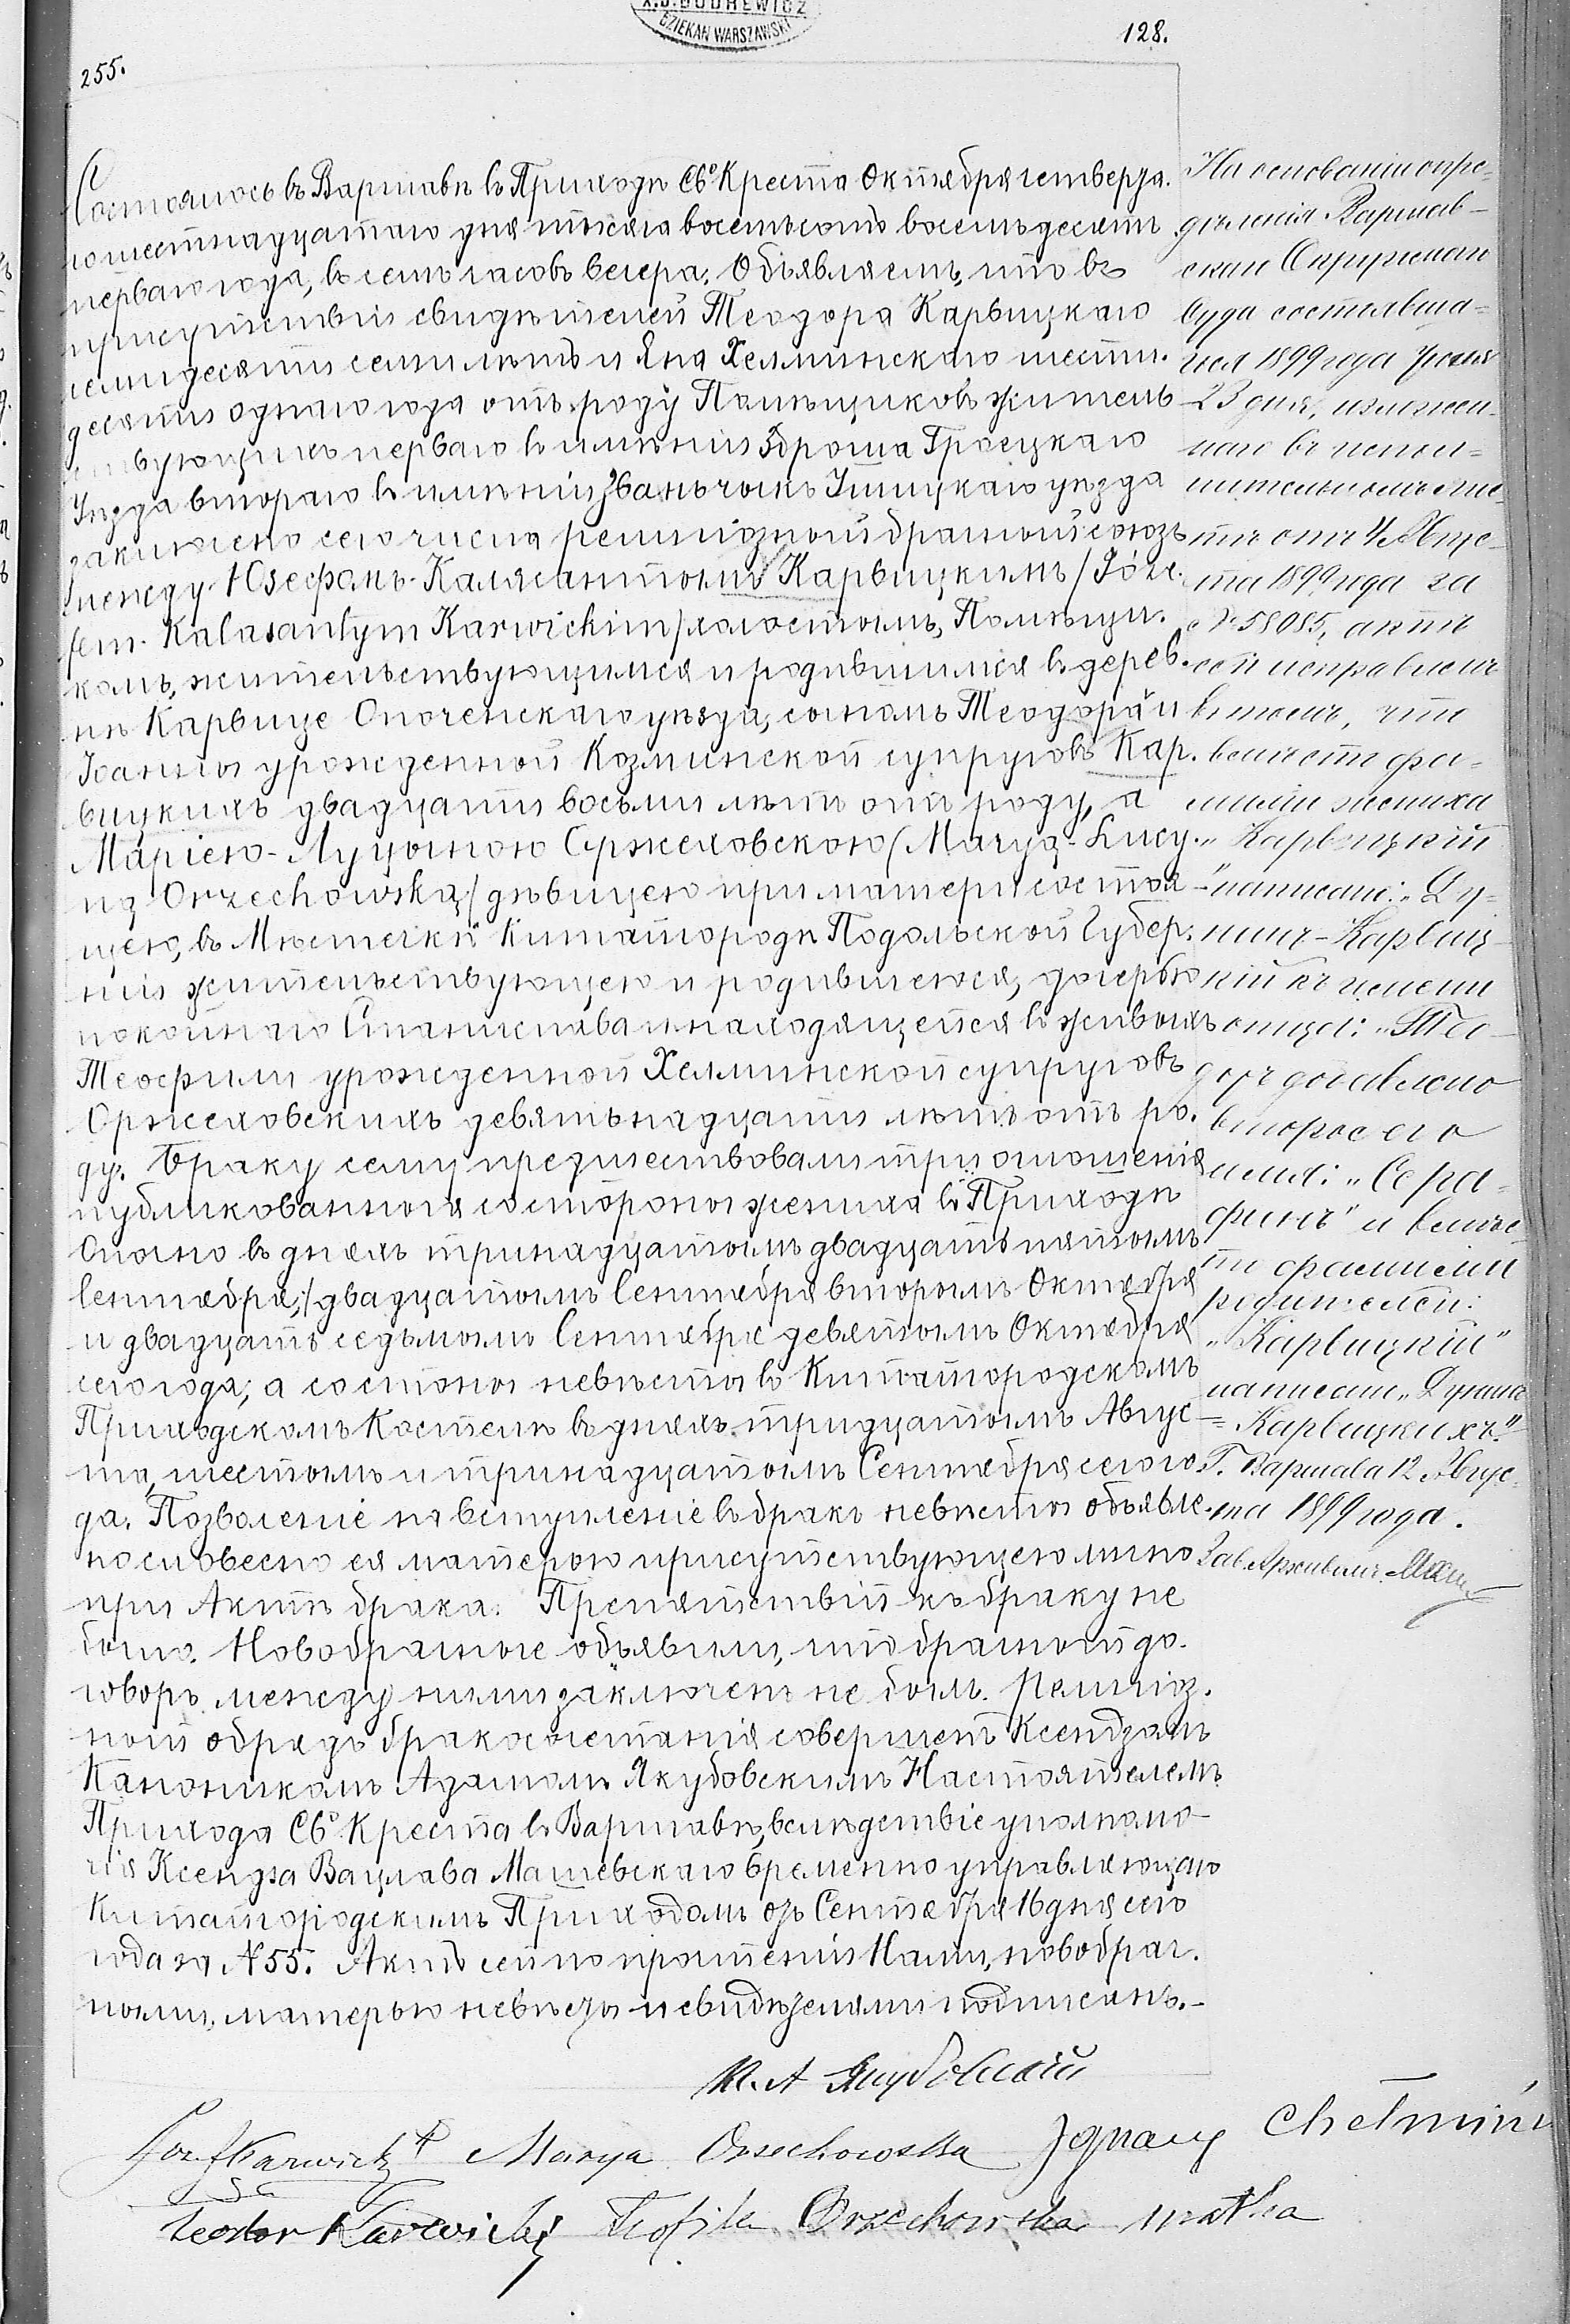 DZIEKAN WARSZAWSKI
128.
255.
Состоялось въ Варшавѣ въ Приходѣ Свº Креста Октября четверта.
го шестнадцатаго дня тысяча восемьсотъ восемьдесятъ
перваго года, въ семь часовъ вечера. Объявляемъ, что въ
присутствіи свидѣтелей Теодора Карвицкаго
семидесяти семи лѣтъ и Яна Хелминскаго шести.
десяти однаго года отъ роду Помѣщиковъ житель
ствующихъ перваго въ имѣніи Зброша Гроецкаго
Уѣзда втораго въ имѣніи Званьчикъ Ушицкаго уѣзда
заключено сего числа религіозный брачный союзъ
между Юзефомъ-Калясантымъ Карвицкимъ /Józe.
fem-Kalasantym Karwickim/ холостымъ, Помѣщи.
комъ, жительствующимся и родившимся въ дерев.
нѣ Карвице Опоченскаго уѣзда, сыномъ Теодора и
Іоанны урожденной Козминской супруговъ Кар.
вицкихъ двадцати восьми лѣтъ отъ роду, а
Маріею-Луцыною Оржеховскою /Maryą-Lucy.
ną Orzechowską/ дѣвицею при матери состоя-
щею, въ Мѣстечкѣ Китайгородѣ Подольской Губер.
ніи жительствующею и родившеюся, дочерью
покойнаго Станислава и находящейся въ живыхъ
Теофили урожденной Хелминской супруговъ
Оржеховскихъ девятьнадцати лѣтъ отъ ро.
ду. Браку сему предшествовали три оглошенія
публикованныя со стороны жениха въ Приходѣ
Опочно въ дняхъ тринадцатымъ двадцать пятымъ
Сентября, двадцатымъ Сентября вторымъ Октября
и двадцать седьмымъ Сентября девятымъ Октября
сего года, а со стороны невѣсты въ Китайгородскомъ
Приходскомъ Костелѣ въ дняхъ тридцатымъ Авгус
та, шестымъ и тринадцатымъ Сентября сего го
да. Позволеніе на вступленіе въ бракъ невѣсты объявле.
но словесно ея матерью присутствующею лично
при Актѣ брака. Препятствій къ браку не
было. Новобрачные объявили, что брачный до.
говоръ между ними заключенъ не былъ. Религіоз.
ный обрядъ бракосочетанія совершенъ Ксендзомъ
Каноникомъ Адамомъ Якубовскимъ Настоятелемъ
Прихода Свº Креста въ Варшавѣ, вслѣдствіе уполномо-
чія Ксендза Вацлава Машевскаго временно управляющаго
Китайгородскимъ Приходомъ отъ Сентября 16 дня сего
года за № 55. Актъ сей по прочтеніи Нами, новобрач.
ными, матерью невѣсты и свидѣтелями подписанъ.-
На основаніи опре-
дѣленія Варшав-
скаго Окружнаго
Суда состоявша-
гося 1899 года Іюня
23 дня, изложен-
наго въ испол-
нительномъ лис-
тѣ отъ 4 Авгус-
та 1899 года за
№ 58085, актъ
сей исправленъ
въ томъ, что
вмѣсто фа-
миліи жениха
„Карвицкій
" написано: „Ду-
нинъ-Карвиц-
кій къ имени
отца: „Тео-
доръ добавлено
второе его
имя: „Сера-
финъ" и вмѣс-
то фамиліи
родителей:
„Карвицкій"
написано „Дунинъ
-Карвицкихъ"
Г. Варшава 12 Авгус-
та 1899 года.
Зав. Архивомъ
К. А Якубовскій
Józef Karwicki Marya Orzechowska Ignacy Chełmiń
Teodor Karwicki Teofila Orzechowska matka